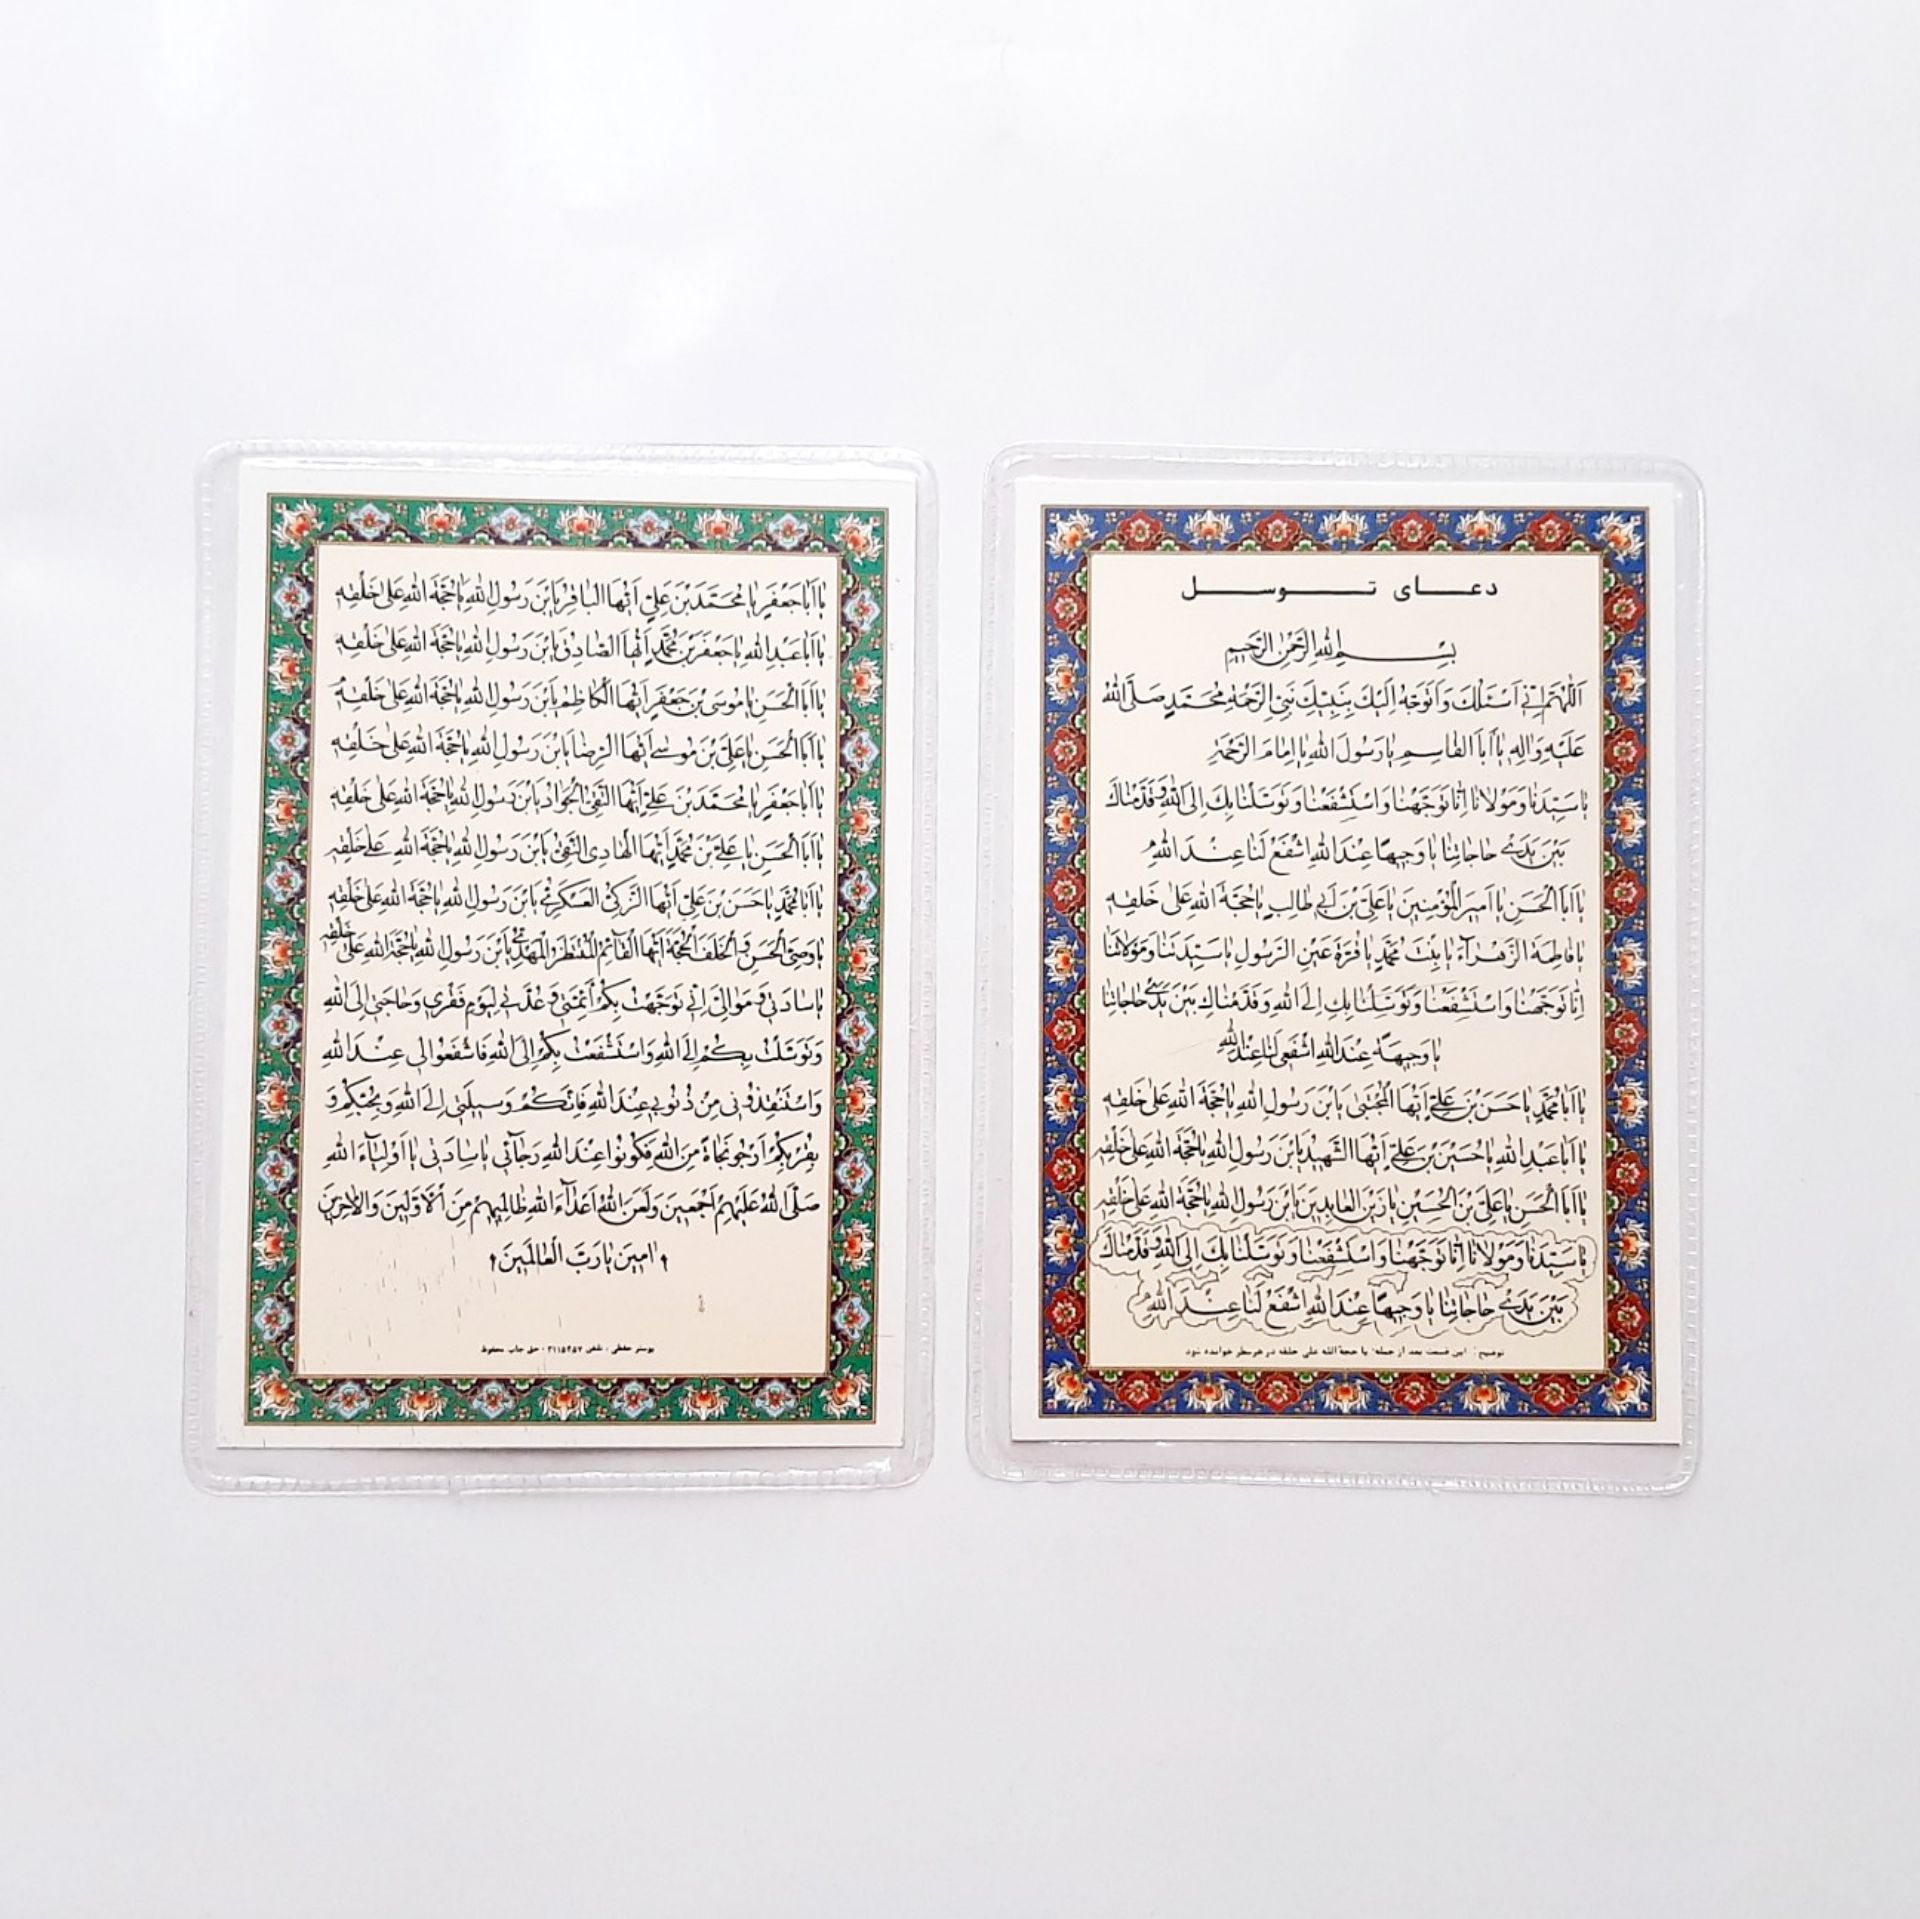 دعای توسل
بِسْمِ اللهِ الرَّحْمٰنِ الرَّحیمِ
اَللّٰهُمَّ اِنّی اَسْئَلُكَ وَاَتَوَجَّهُ اِلَیْكَ بِنَبِیِّكَ نَبِیِّ الرَّحْمَةِ مُحَمَّدٍ صَلَّی اللهُ
عَلَیْهِ وَاٰلِهِ یٰا اَبَا الْقٰاسِمِ یٰا رَسُولَ اللهِ یٰا اِمٰامَ الرَّحْمَةِ
یٰا سَیِّدَنٰا وَمَوْلانٰا اِنّٰا تَوَجَّهْنٰا وَاسْتَشْفَعْنٰا وَتَوَسَّلْنٰا بِكَ اِلَی اللهِ وَقَدَّمْنٰاكَ
بَیْنَ یَدَیْ حٰاجٰاتِنٰا یٰا وَجیهًا عِنْدَ اللهِ اشْفَعْ لَنٰا عِنْدَ اللهِ
یٰا اَبَا الْحَسَنِ یٰا اَمیرَ الْمُؤْمِنینَ یٰا عَلِیَّ بْنَ اَبی طٰالِبٍ یٰا حُجَّةَ اللهِ عَلیٰ خَلْقِهِ
یٰا فٰاطِمَةَ الزَّهْرٰآءُ یٰا بِنْتَ مُحَمَّدٍ یٰا قُرَّةَ عَیْنِ الرَّسُولِ یٰا سَیِّدَتَنٰا وَمَوْلاتَنٰا
اِنّٰا تَوَجَّهْنٰا وَاسْتَشْفَعْنٰا وَتَوَسَّلْنٰا بِكِ اِلَی اللهِ وَقَدَّمْنٰاكِ بَیْنَ یَدَیْ حٰاجٰاتِنٰا
یٰا وَجیهَةً عِنْدَ اللهِ اشْفَعی لَنٰا عِنْدَ اللهِ
یٰا اَبٰا مُحَمَّدٍ یٰا حَسَنَ بْنَ عَلِیٍّ اَیُّهَا الْمُجْتَبیٰ یَابْنَ رَسُولِ اللهِ یٰا حُجَّةَ اللهِ عَلیٰ خَلْقِهِ
یٰا اَبٰا عَبْدِ اللهِ یٰا حُسَیْنَ بْنَ عَلِیٍّ اَیُّهَا الشَّهیدُ یَابْنَ رَسُولِ اللهِ یٰا حُجَّةَ اللهِ عَلیٰ خَلْقِهِ
یٰا اَبَا الْحَسَنِ یٰا عَلِیَّ بْنَ الْحُسَیْنِ یٰا زَیْنَ الْعٰابِدینَ یَابْنَ رَسُولِ اللهِ یٰا حُجَّةَ اللهِ عَلیٰ خَلْقِهِ
یٰا سَیِّدَنٰا وَمَوْلانٰا اِنّٰا تَوَجَّهْنٰا وَاسْتَشْفَعْنٰا وَتَوَسَّلْنٰا بِكَ اِلَی اللهِ وَقَدَّمْنٰاكَ
بَیْنَ یَدَیْ حٰاجٰاتِنٰا یٰا وَجیهًا عِنْدَ اللهِ اشْفَعْ لَنٰا عِنْدَ اللهِ
توضیح : این قسمت بعد از جمله یا حجة الله علی خلقه در هر سطر خوانده شود
یٰا اَبٰا جَعْفَرٍ یٰا مُحَمَّدَ بْنَ عَلِیٍّ اَیُّهَا الْبٰاقِرُ یَابْنَ رَسُولِ اللهِ یٰا حُجَّةَ اللهِ عَلیٰ خَلْقِهِ
یٰا اَبٰا عَبْدِ اللهِ یٰا جَعْفَرَ بْنَ مُحَمَّدٍ اَیُّهَا الصّٰادِقُ یَابْنَ رَسُولِ اللهِ یٰا حُجَّةَ اللهِ عَلیٰ خَلْقِهِ
یٰا اَبَا الْحَسَنِ یٰا مُوسَی بْنَ جَعْفَرٍ اَیُّهَا الْكٰاظِمُ یَابْنَ رَسُولِ اللهِ یٰا حُجَّةَ اللهِ عَلیٰ خَلْقِهِ
یٰا اَبَا الْحَسَنِ یٰا عَلِیَّ بْنَ مُوسیٰ اَیُّهَا الرِّضٰا یَابْنَ رَسُولِ اللهِ یٰا حُجَّةَ اللهِ عَلیٰ خَلْقِهِ
یٰا اَبٰا جَعْفَرٍ یٰا مُحَمَّدَ بْنَ عَلِیٍّ اَیُّهَا التَّقِیُّ الْجَوٰادُ یَابْنَ رَسُولِ اللهِ یٰا حُجَّةَ اللهِ عَلیٰ خَلْقِهِ
یٰا اَبَا الْحَسَنِ یٰا عَلِیَّ بْنَ مُحَمَّدٍ اَیُّهَا الْهٰادِی النَّقِیُّ یَابْنَ رَسُولِ اللهِ یٰا حُجَّةَ اللهِ عَلیٰ خَلْقِهِ
یٰا اَبٰا مُحَمَّدٍ یٰا حَسَنَ بْنَ عَلِیٍّ اَیُّهَا الزَّكِیُّ الْعَسْكَرِیُّ یَابْنَ رَسُولِ اللهِ یٰا حُجَّةَ اللهِ عَلیٰ خَلْقِهِ
یٰا وَصِیَّ الْحَسَنِ وَ الْخَلَفَ الْحُجَّةَ اَیُّهَا الْقٰآئِمُ الْمُنْتَظَرُ الْمَهْدِیُّ یَابْنَ رَسُولِ اللهِ یٰا حُجَّةَ اللهِ عَلیٰ خَلْقِهِ
یٰا سٰادَتی وَ مَوٰالِیَّ اِنّی تَوَجَّهْتُ بِكُمْ اَئِمَّتی وَ عُدَّتی لِیَوْمِ فَقْری وَ حٰاجَتی اِلَی اللهِ
وَتَوَسَّلْتُ بِكُمْ اِلَی اللهِ وَاسْتَشْفَعْتُ بِكُمْ اِلَی اللهِ فَاشْفَعُوا لی عِنْدَ اللهِ
وَاسْتَنْقِذُونی مِنْ ذُنُوبی عِنْدَ اللهِ فَاِنَّكُمْ وَسیلَتی اِلَی اللهِ وَبِحُبِّكُمْ وَ
بِقُرْبِكُمْ اَرْجُو نَجٰاةً مِنَ اللهِ فَكُونُوا عِنْدَ اللهِ رَجٰآئی یٰا سٰادَتی یٰا اَوْلِیٰآءَ اللهِ
صَلَّی اللهُ عَلَیْهِمْ اَجْمَعینَ وَلَعَنَ اللهُ اَعْدٰآءَ اللهِ ظٰالِمیهِمْ مِنَ الْاَوَّلینَ وَالْاٰخِرینَ
اٰمینَ یٰا رَبَّ الْعٰالَمینَ
پوستر حقطی - تلفن ۳۱۱۵۴۵۷ - حق چاپ محفوظ